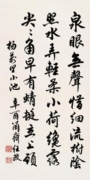 泉眼無聲惜細流樹陰
照水弄輕柔小荷纔露
尖尖角早有蜻蜓立上頭
楊萬里小池 辛酉 任政